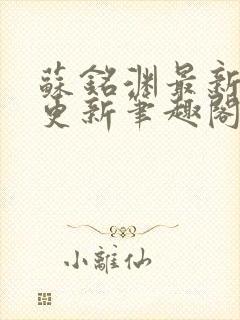 蘇銘淵最新
更新筆趣閣
小離仙